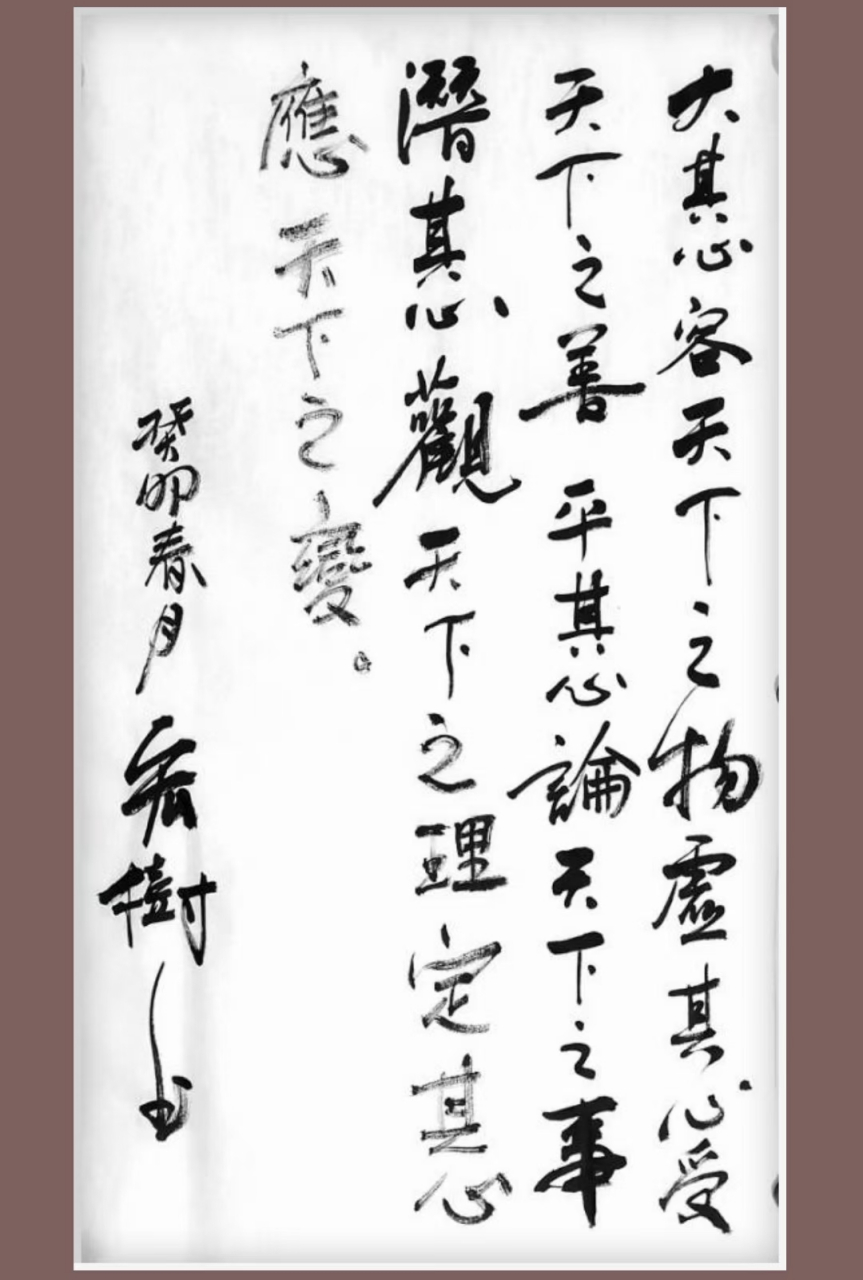 大其心容天下之物虛其心受
天下之善平其心論天下之事
潛其心觀天下之理定其心
應天下之變。
癸卯春月宏樹书